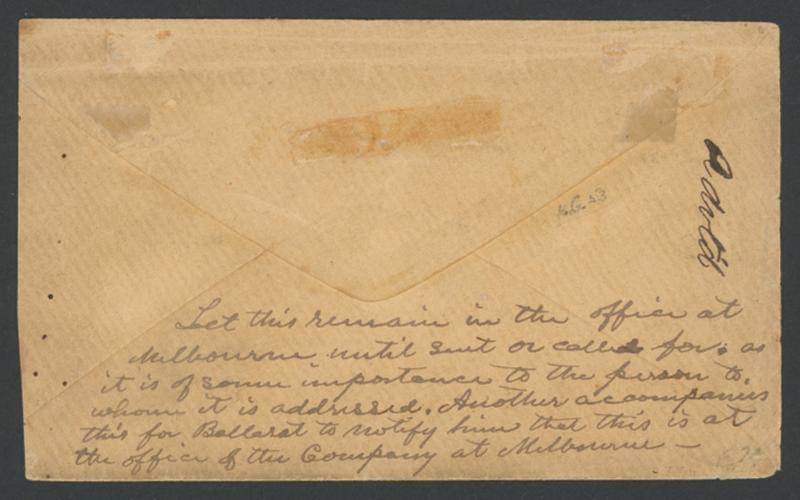 Advtd
Let this remain in the office at
Melbourne until sent or called for, as
it is of some importance to the person to
whom it is addressed. Another accompanies
this for Ballarat to notify him that this is at
the office of the Company at Melbourne —